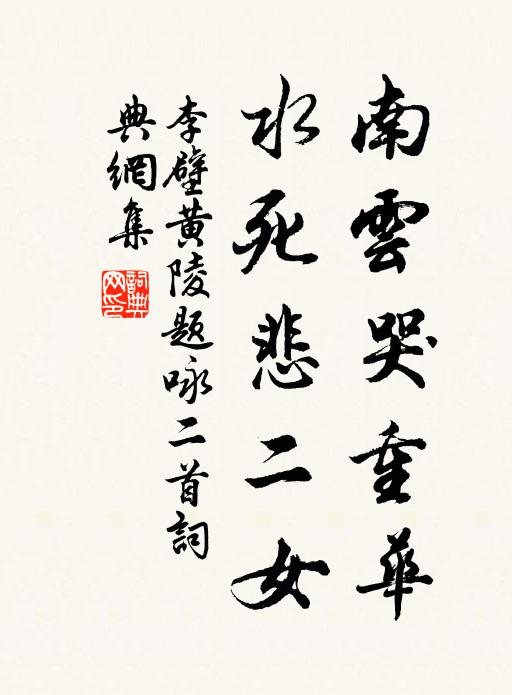 南雲哭重華
水死悲二女
李壁黄陵題咏二首詞
典網集
詞典網印